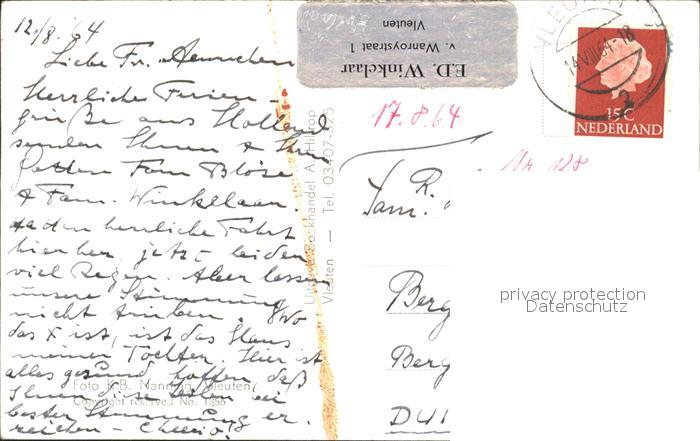 12/8. 64
Liebe Fr.
Herrliche Ferien-
grüße aus Holland
senden Ihnen & Ihrem
Gatten Fam. Blöse
& Fam. Winkelaar.
hatten herrliche Fahrt
hierher, jetzt leider
viel Regen. Aber lassen
unsere Stimmung
nicht trüben. Wo
das X ist, ist das Haus
meiner Tochter. Hier ist
alles gesund, hoffen, daß
Ihnen diese Zeilen bei
bester Stimmung er-
reichen - Cheerio
Foto K.B. Nanning, Vleuten
Copyright reserved No. 1356
Uitgave: Boekhandel A. Hilhorst
Vleuten — Tel. 03407-375
E.D. Winkelaar
v. Wanroystraat 1
Vleuten
17.8.64
VLEUTEN
14 VIII 64-18
2
15 C
NEDERLAND
No 128
Fam. R.
Berg
Berg
privacy protection
Datenschutz